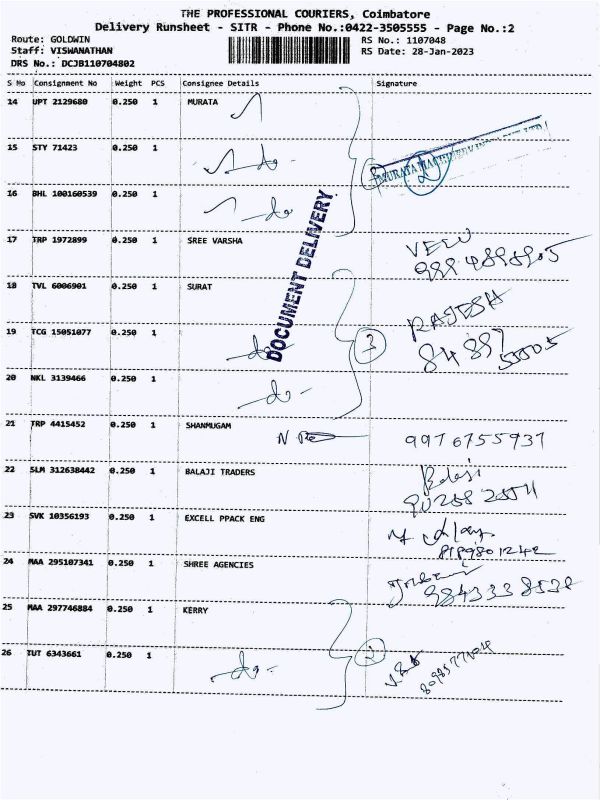 THE PROFESSIONAL COURIERS, Coimbatore
Delivery Runsheet - SITR - Phone No.:0422-3505555 - Page No.:2
Route: GOLDWIN RS No.: 1107048
Staff: VISWANATHAN RS Date: 28-Jan-2023
DRS No.: DCJB110704802
S No Consignment No Weight PCS Consignee Details Signature
14 UPT 2129680 0.250 1 MURATA
15 STY 71423 0.250 1 -do-
MURATA MACHINERY
16 BHL 100160539 0.250 1 -do-
DOCUMENT DELIVERY
17 TRP 1972899 0.250 1 SREE VARSHA
18 TVL 6006901 0.250 1 SURAT RAJESH
19 TCG 15051077 0.250 1 -do- 3
20 NKL 3139466 0.250 1 -do-
21 TRP 4415452 0.250 1 SHANMUGAM 9976755937
22 SLM 312638442 0.250 1 BALAJI TRADERS Balaji
23 SVK 10356193 0.250 1 EXCELL PPACK ENG
24 MAA 295107341 0.250 1 SHREE AGENCIES
9843338538
25 MAA 297746884 0.250 1 KERRY
26 TUT 6343661 0.250 1 -do- 2